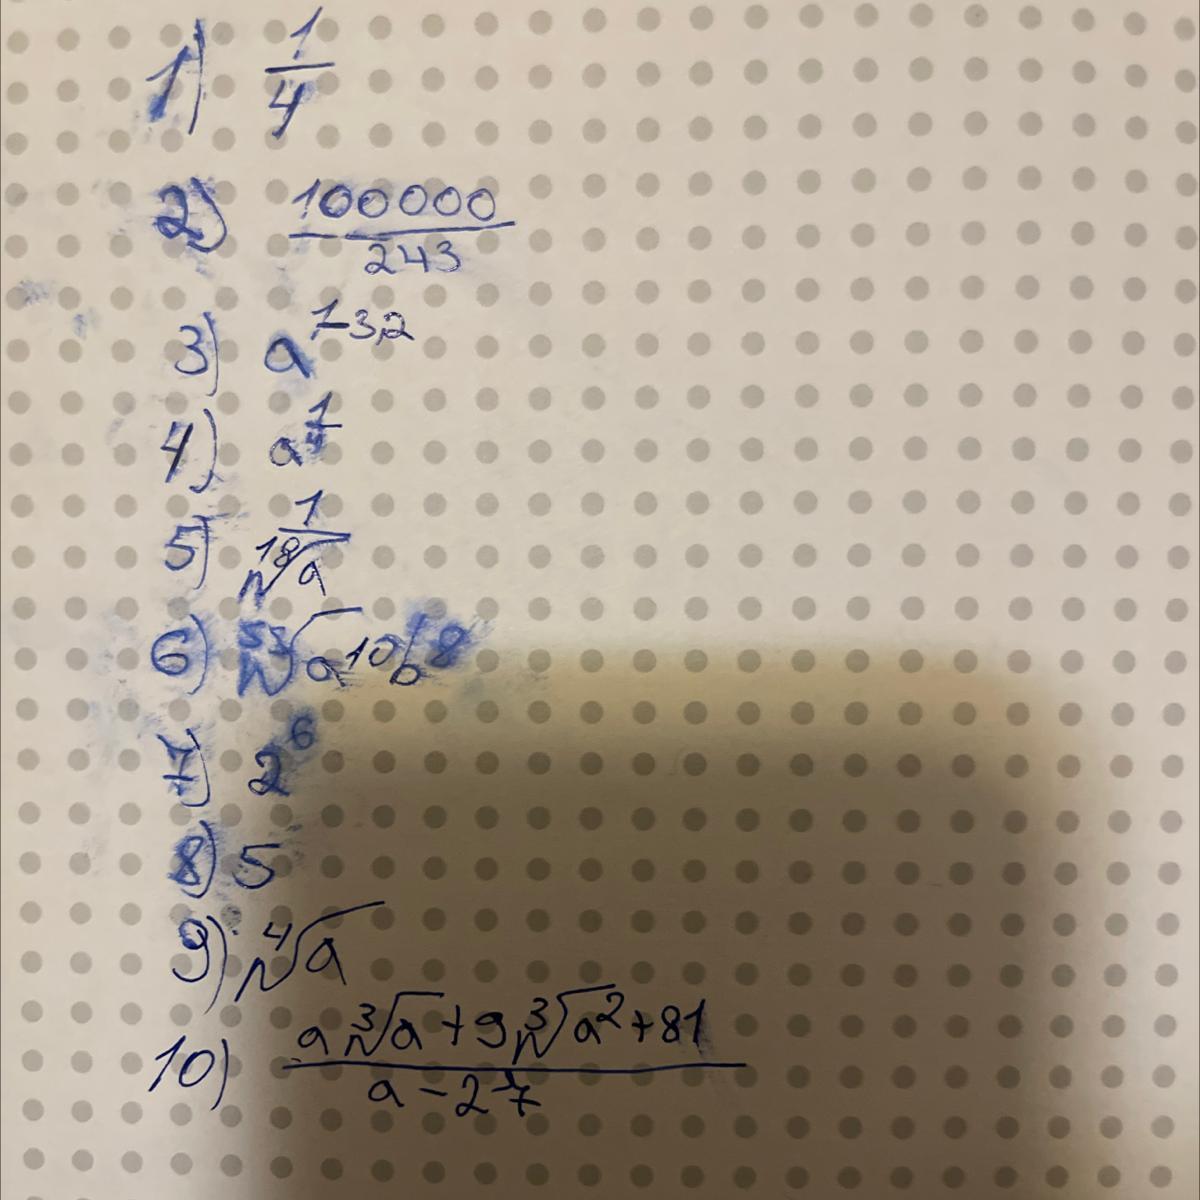 1) 1/4
2) 100000/243
3) a^{7-3,2}
4) a^{1/4}
5) 1/\sqrt[18]{a}
6) \sqrt[53]{a^{10}b^{8}}
7) 2^6
8) 5
9) \sqrt[4]{a}
10) (a\sqrt[3]{a}+9\sqrt[3]{a^2}+81)/(a-27)